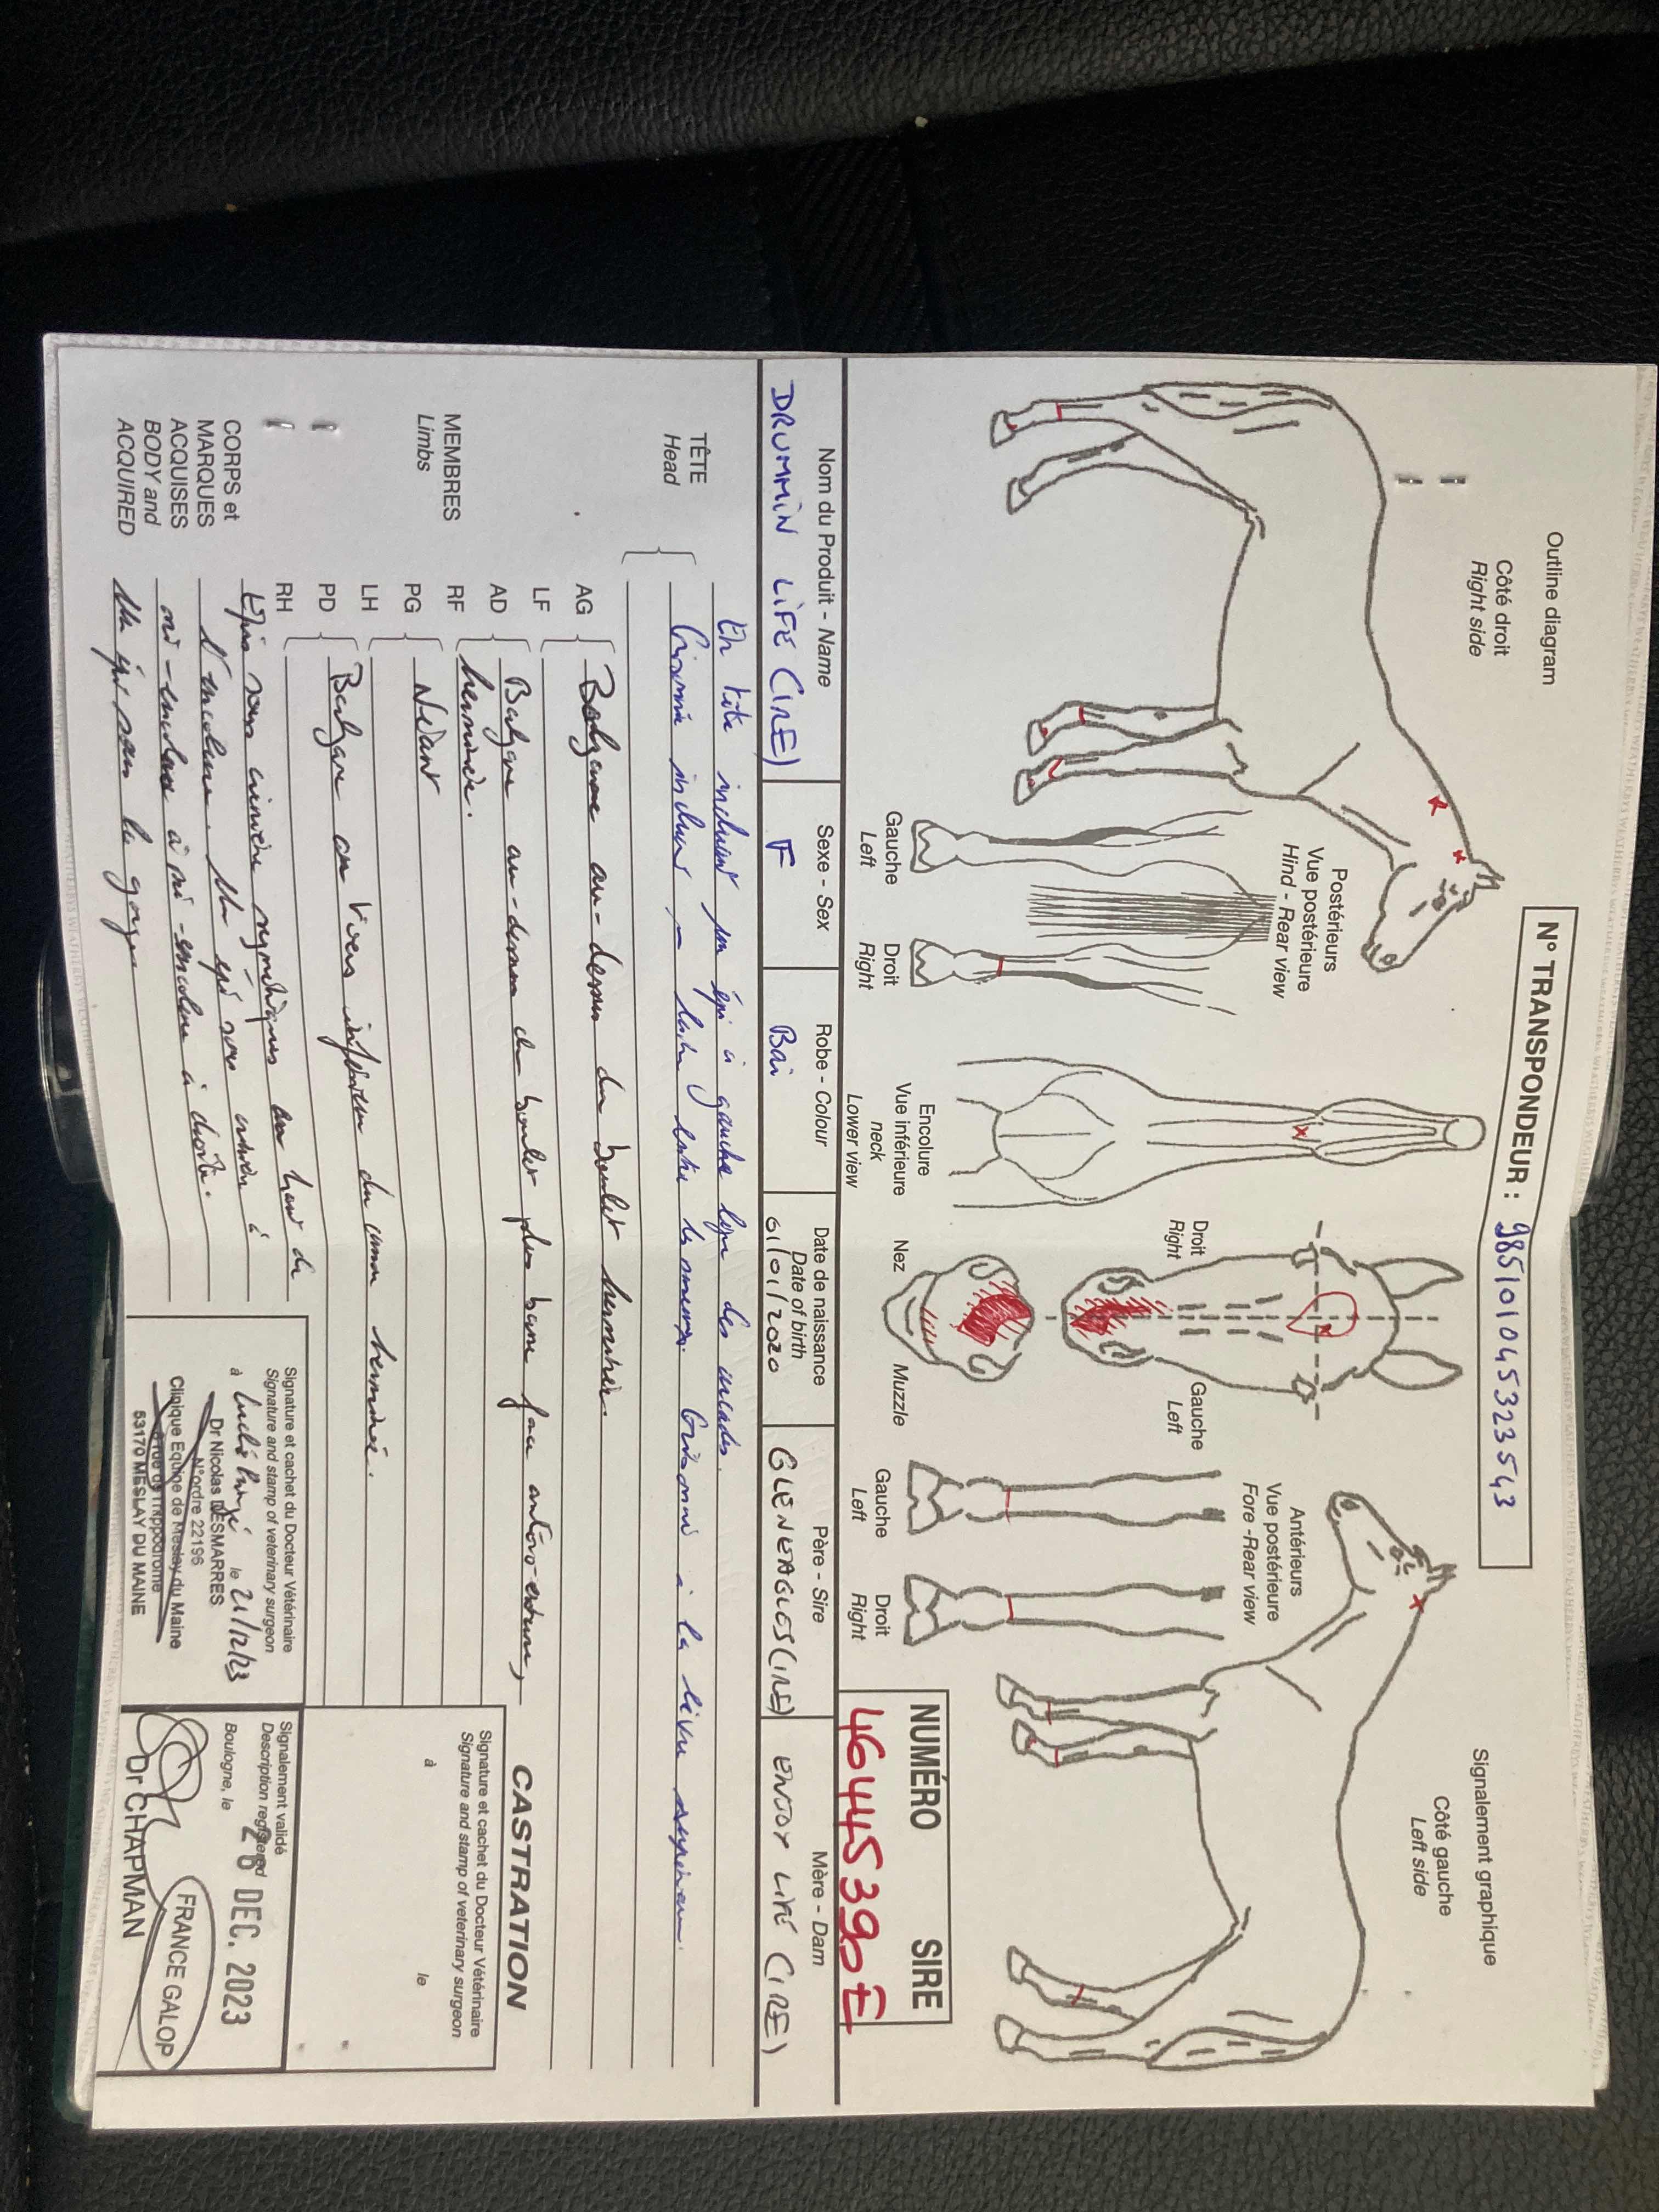 Outline diagram
Signalement graphique
N° TRANSPONDEUR : 985101045323543
Côté droit
Right side
Côté gauche
Left side
Postérieurs
Vue postérieure
Hind - Rear view
Gauche
Left
Droit
Right
Encolure
Vue inférieure
neck
Lower view
Droit
Right
Gauche
Left
Nez
Muzzle
Antérieurs
Vue postérieure
Fore -Rear view
Gauche
Left
Droit
Right
NUMÉRO SIRE
46445390E
Nom du Produit - Name
Sexe - Sex
Robe - Colour
Date de naissance
Date of birth
Père - Sire
Mère - Dam
DRUMMIN LIFE (IRE)
F
Bai
01/01/2020
GLENEAGLES (IRE)
ENJOY LIFE (IRE)
TÊTE
Head
En tête incluant un épi à gauche ligne des arcades.
Grisonné incluant entre les naseaux. Grisonné à la lèvre supérieure.
MEMBRES
Limbs
AG
LF
Balzane au-dessus du boulet herminée.
AD
RF
Balzane au-dessus du boulet plus basse face antéro-externe,
herminée.
PG
LH
Néant
PD
RH
Balzane au tiers inférieur du canon herminé.
CORPS et
MARQUES
ACQUISES
BODY and
ACQUIRED
Epis sous crinière symétriques au haut de
l'encolure. Un épi sous crinière à
mi-encolure à droite.
Un épi sous la gorge
CASTRATION
Signature et cachet du Docteur Vétérinaire
Signature and stamp of veterinary surgeon
à le
Signature et cachet du Docteur Vétérinaire
Signature and stamp of veterinary surgeon
à le 21/12/23
Dr Nicolas DESMARRES
N°ordre 22196
Clinique Equine de Meslay du Maine
rue de l'hippodrome
53170 MESLAY DU MAINE
Signalement validé
Description registered
Boulogne, le
26 DEC. 2023
FRANCE GALOP
Dr CHAPMAN